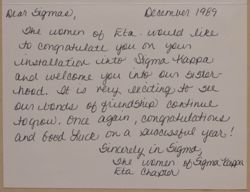 Dear Sigmas, December 1989
The women of Eta would like
to congratulate you on your
installation into Sigma Kappa
and welcome you into our sister-
hood. It is very exciting to see
our bonds of friendship continue
to grow. Once again, congratulations
and good luck on a successful year!
Sincerely in Sigma,
The women of Sigma Kappa
Eta Chapter